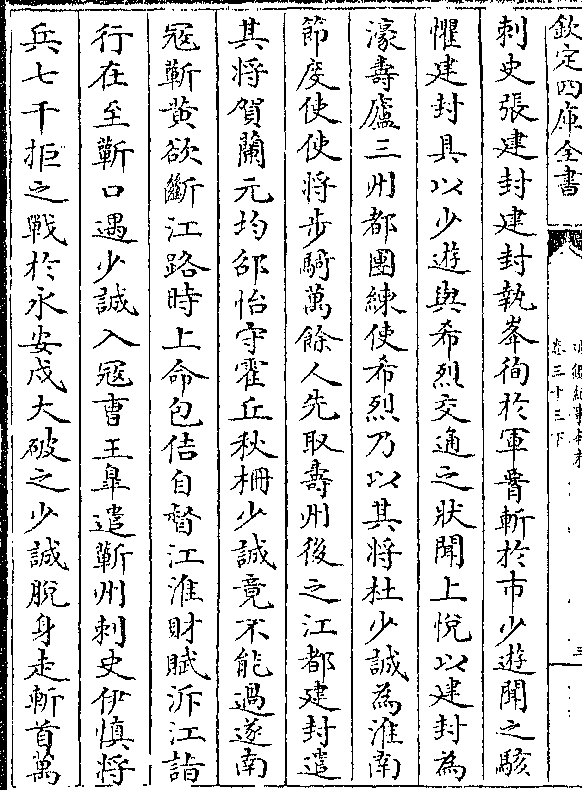 欽定四庫全書
卷三十三下
刺史張建封建封執峯徇於軍腰斬於市少遊聞之駭
懼建封具以少遊與希烈交通之狀聞上悦以建封為
濠壽廬三州都團練使希烈乃以其將杜少誠為淮南
節度使使將步騎萬餘人先取壽州後之江都建封遣
其將賀蘭元均邵怡守霍丘秋柵少誠竟不能過遂南
寇蘄黄欲斷江路時上命包佶自督江淮財賦泝江詣
行在至蘄口遇少誠入寇曹王臯遣蘄州刺史伊慎將
兵七千拒之戰於永安戍大破之少誠脱身走斬首萬